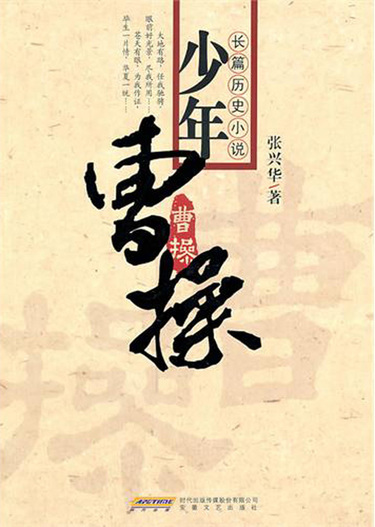 长篇历史小说
少年
曹操
曹操
张兴华/著
大地有路，任我驰骋，
眼前好光景，尽我所用……
苍天有眼，为我作证，
毕生一片情，华夏一统！……
时代出版传媒股份有限公司
安徽文艺出版社